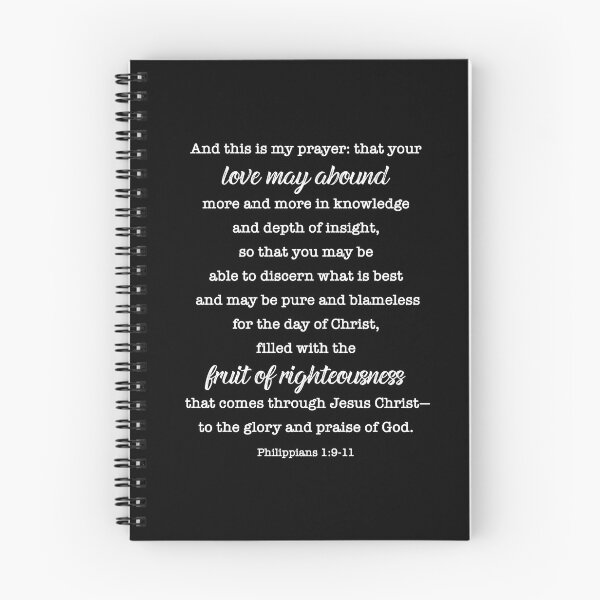 And this is my prayer: that your
love may abound
more and more in knowledge
and depth of insight,
so that you may be
able to discern what is best
and may be pure and blameless
for the day of Christ,
filled with the
fruit of righteousness
that comes through Jesus Christ—
to the glory and praise of God.
Philippians 1:9-11